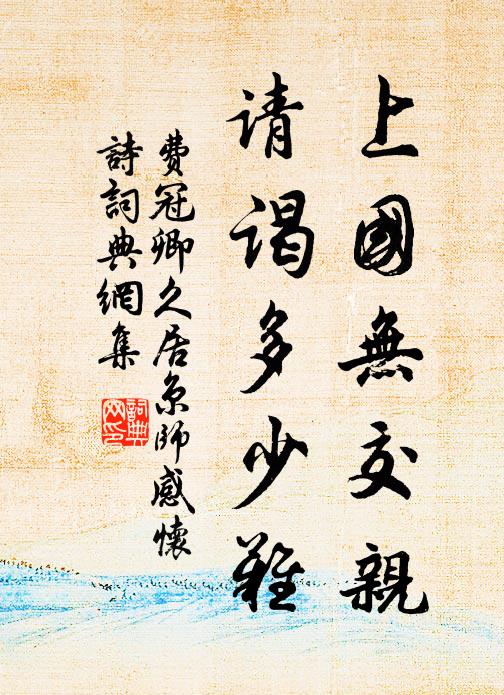 上國無交親
请谒多少難
費冠卿久居京師感懷
詩詞典網集
詞典网印